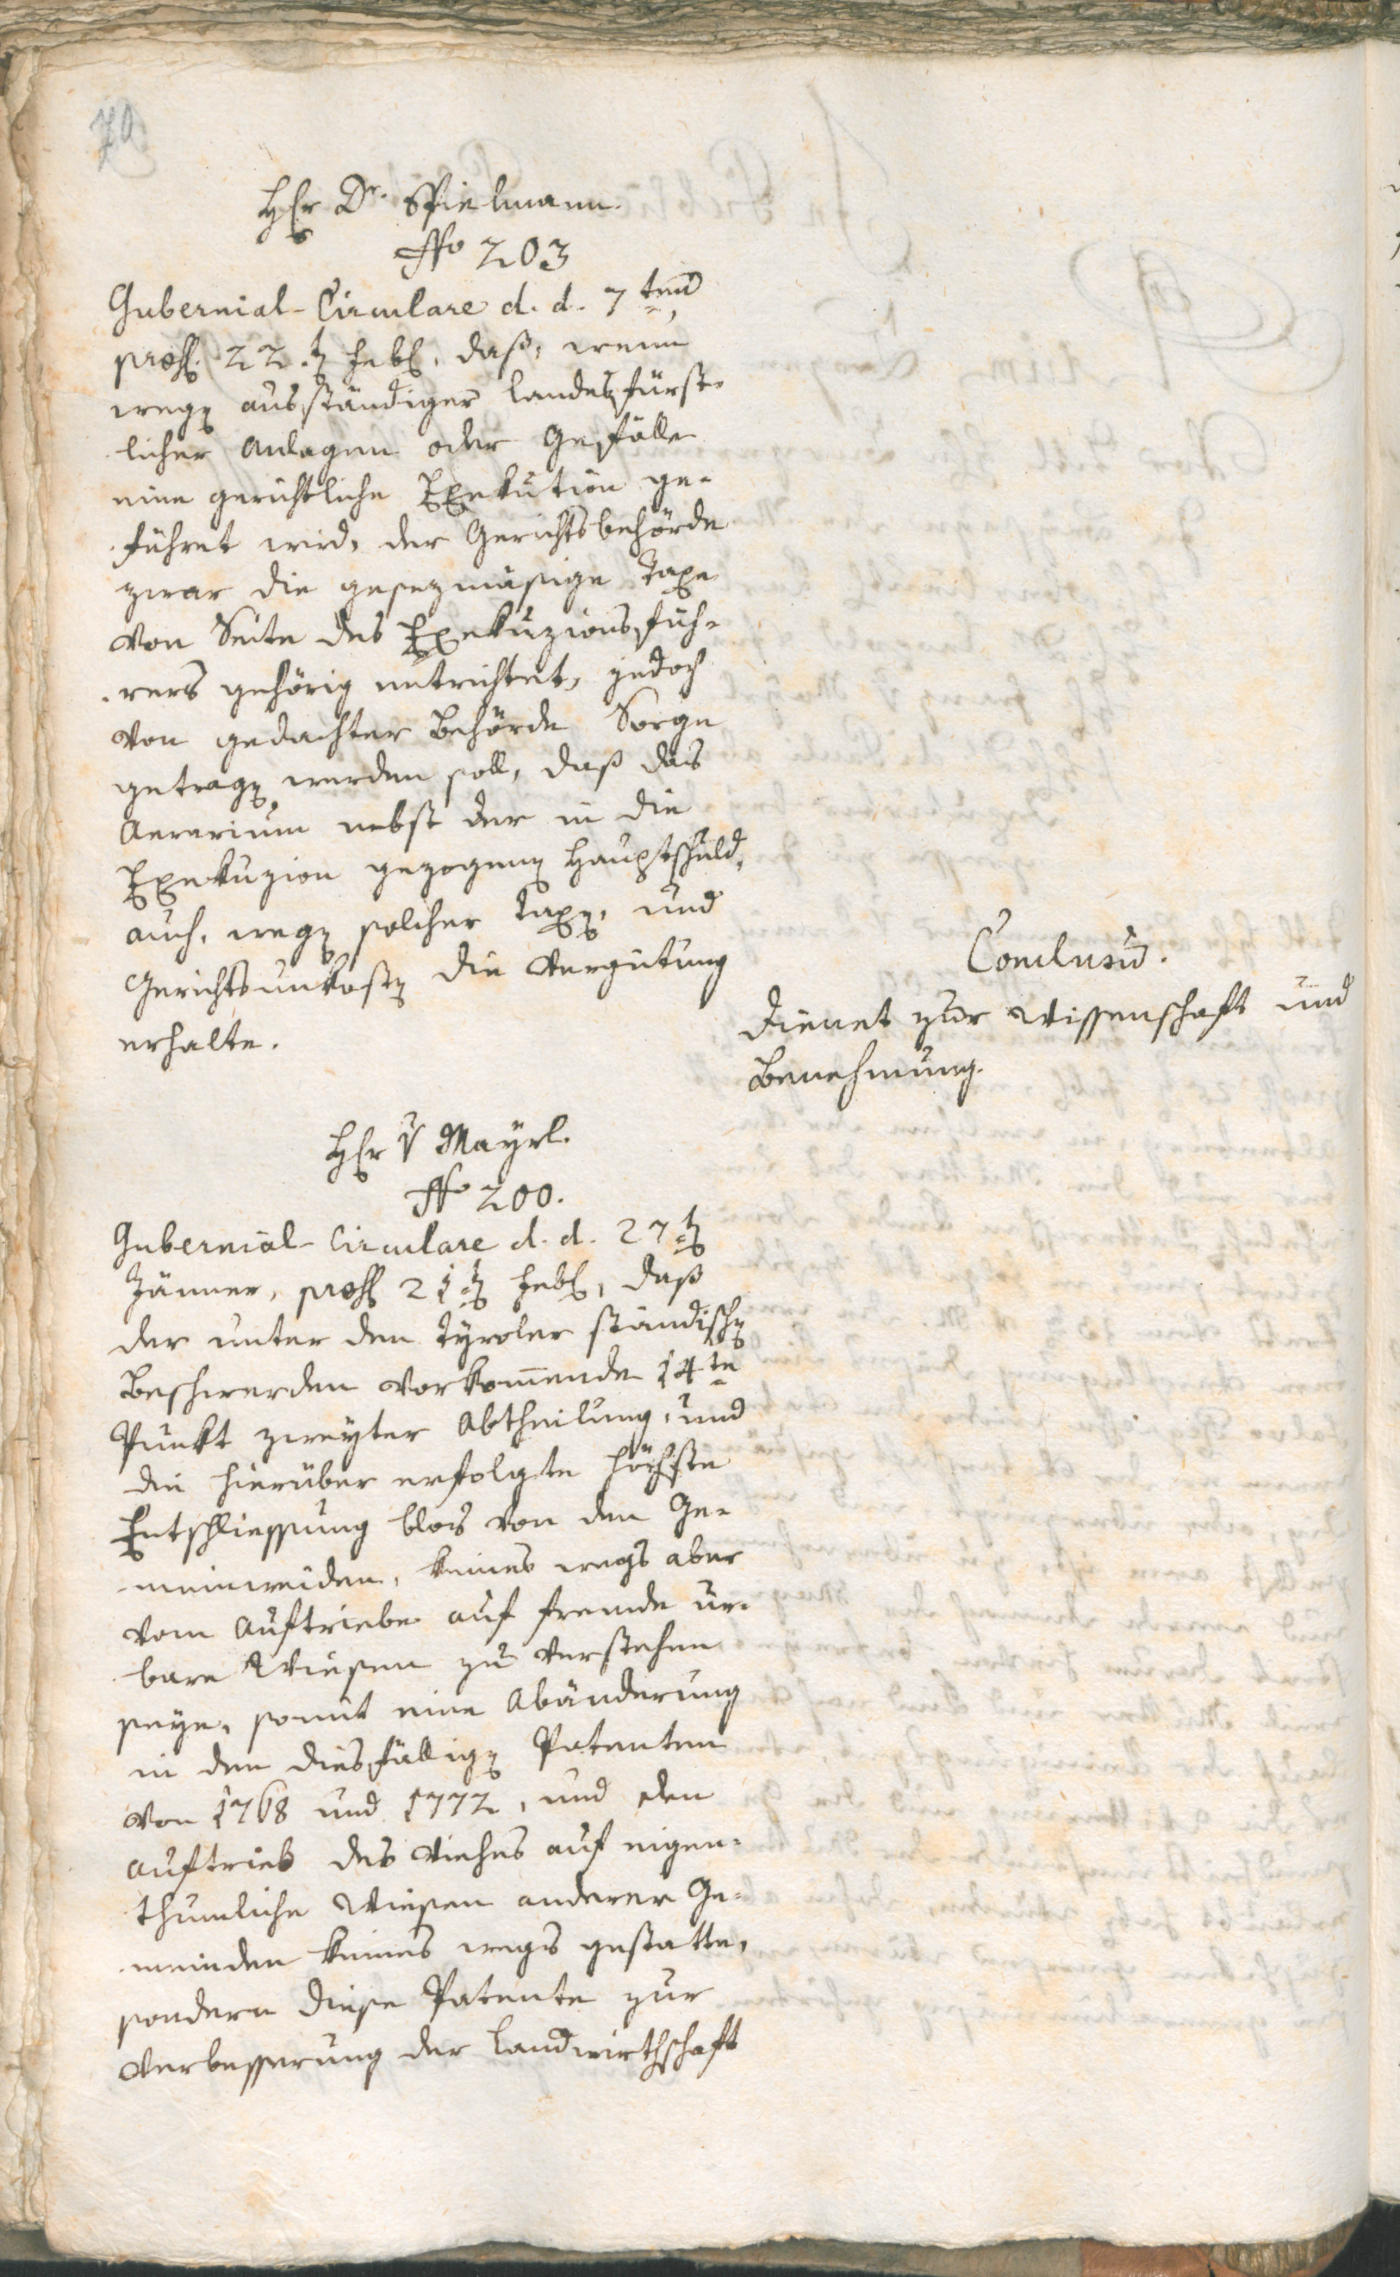 70
Hr Dr. Spielmann.
No 203
Gubernial-Circulare d. d. 7ten
praes. 22.t Febr. daß, wenn
wegen ausständiger landesfürst-
licher Anlagen oder Gefälle
eine gerichtliche Exekution ge-
führet wird, der Gerichtsbehörde
zwar die gesezmäsige Taxe
von Seite des Exekuzionsfüh-
rers gehörig entrichtet, jedoch
von gedachter Behörde Sorge
getragen werden soll, daß das
Aerarium nebst der in die
Exekuzion gezogenen Hauptschuld,
auch, wegen solcher Taxen, und
Gerichtsunkosten die Vergütung
erhalte.
Conclusum.
Dienet zur Wissenschaft und
Benehmung.
Hr v Mayrl.
No 200.
Gubernial-Circulare d. d. 27t
Jänner, praes 21t Febr, daß
der unter den Tyroler ständischen
Beschwerden vorkommende 14te
Punkt zweyter Abtheilung, und
die hierüber erfolgte höchste
Entschliessung blos von den Ge-
meinweiden, keines wegs aber
vom Auftriebe auf fremde ur-
bare Wiesen zu verstehen
seye, somit eine Abänderung
in den diesfälligen Patenten
von 1768 und 1772, und den
Auftrieb des Viehes auf eigen-
thumliche Wiesen anderer Ge-
meinden keines wegs gestatte,
sondern diese Patente zur
Verbesserung der Landwirthschaft